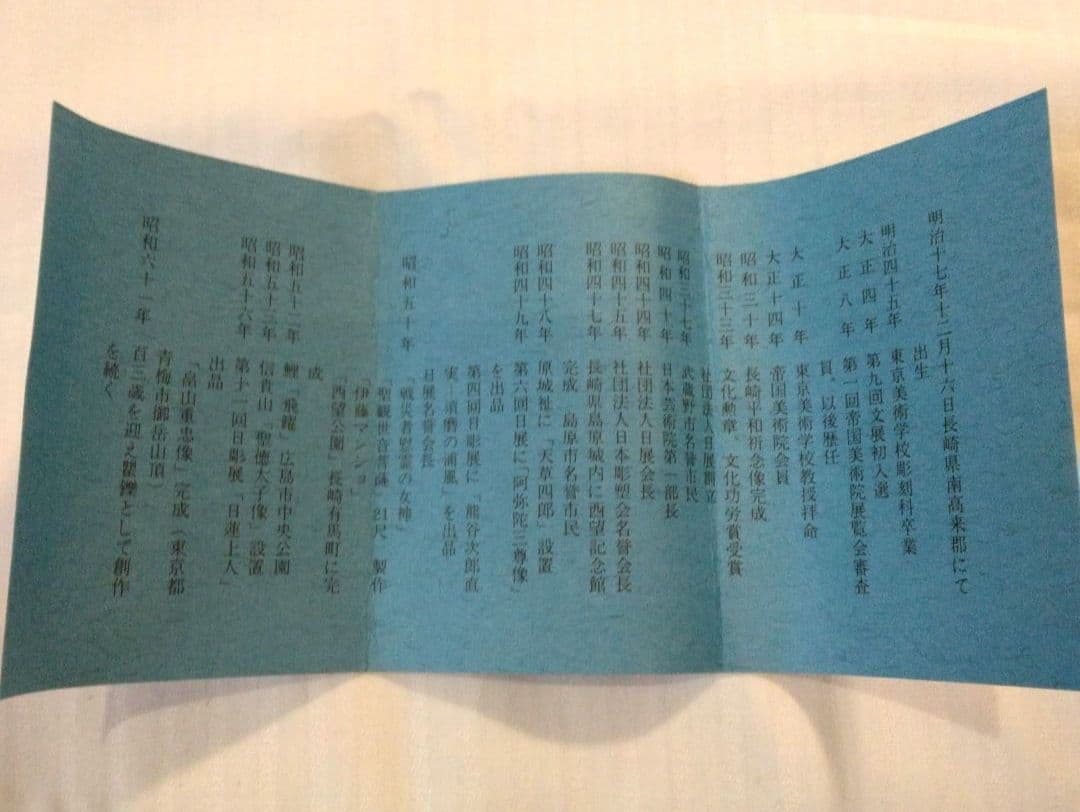 明治十七年十二月十六日長崎県南高来郡にて
出生
明治四十五年 東京美術学校彫刻科卒業
大正四年 第九回文展初入選
大正八年 第一回帝国美術院展覧会審査
員、以後歴任
大正十年 東京美術学校教授拝命
大正十四年 帝国美術院会員
昭和三十年 長崎平和祈念像完成
昭和三十三年 文化勲章、文化功労賞受賞
社団法人日展創立
昭和三十七年 武蔵野市名誉市民
昭和四十年 日本芸術院第一部長
昭和四十四年 社団法人日展会長
昭和四十五年 社団法人日本彫塑会名誉会長
昭和四十七年 長崎県島原城内に西望記念館
完成 島原市名誉市民
昭和四十八年 原城祉に「天草四郎」設置
昭和四十九年 第六回日展に「阿弥陀三尊像」
を出品
第四回日彫展に「熊谷次郎直
実、須磨の浦風」を出品
日展名誉会長
昭和五十年 「戦災者慰霊の女神」
「聖観世音菩薩」21尺 製作
「伊藤マンショ」
「西望公園」長崎有馬町に完
成
昭和五十二年 鯉「飛躍」広島市中央公園
昭和五十三年 信貴山「聖徳太子像」設置
昭和五十六年 第十一回日彫展「日蓮上人」
出品
「畠山重忠像」完成（東京都
青梅市御岳山頂）
昭和六十一年 百三歳を迎え矍鑠として創作
を続く